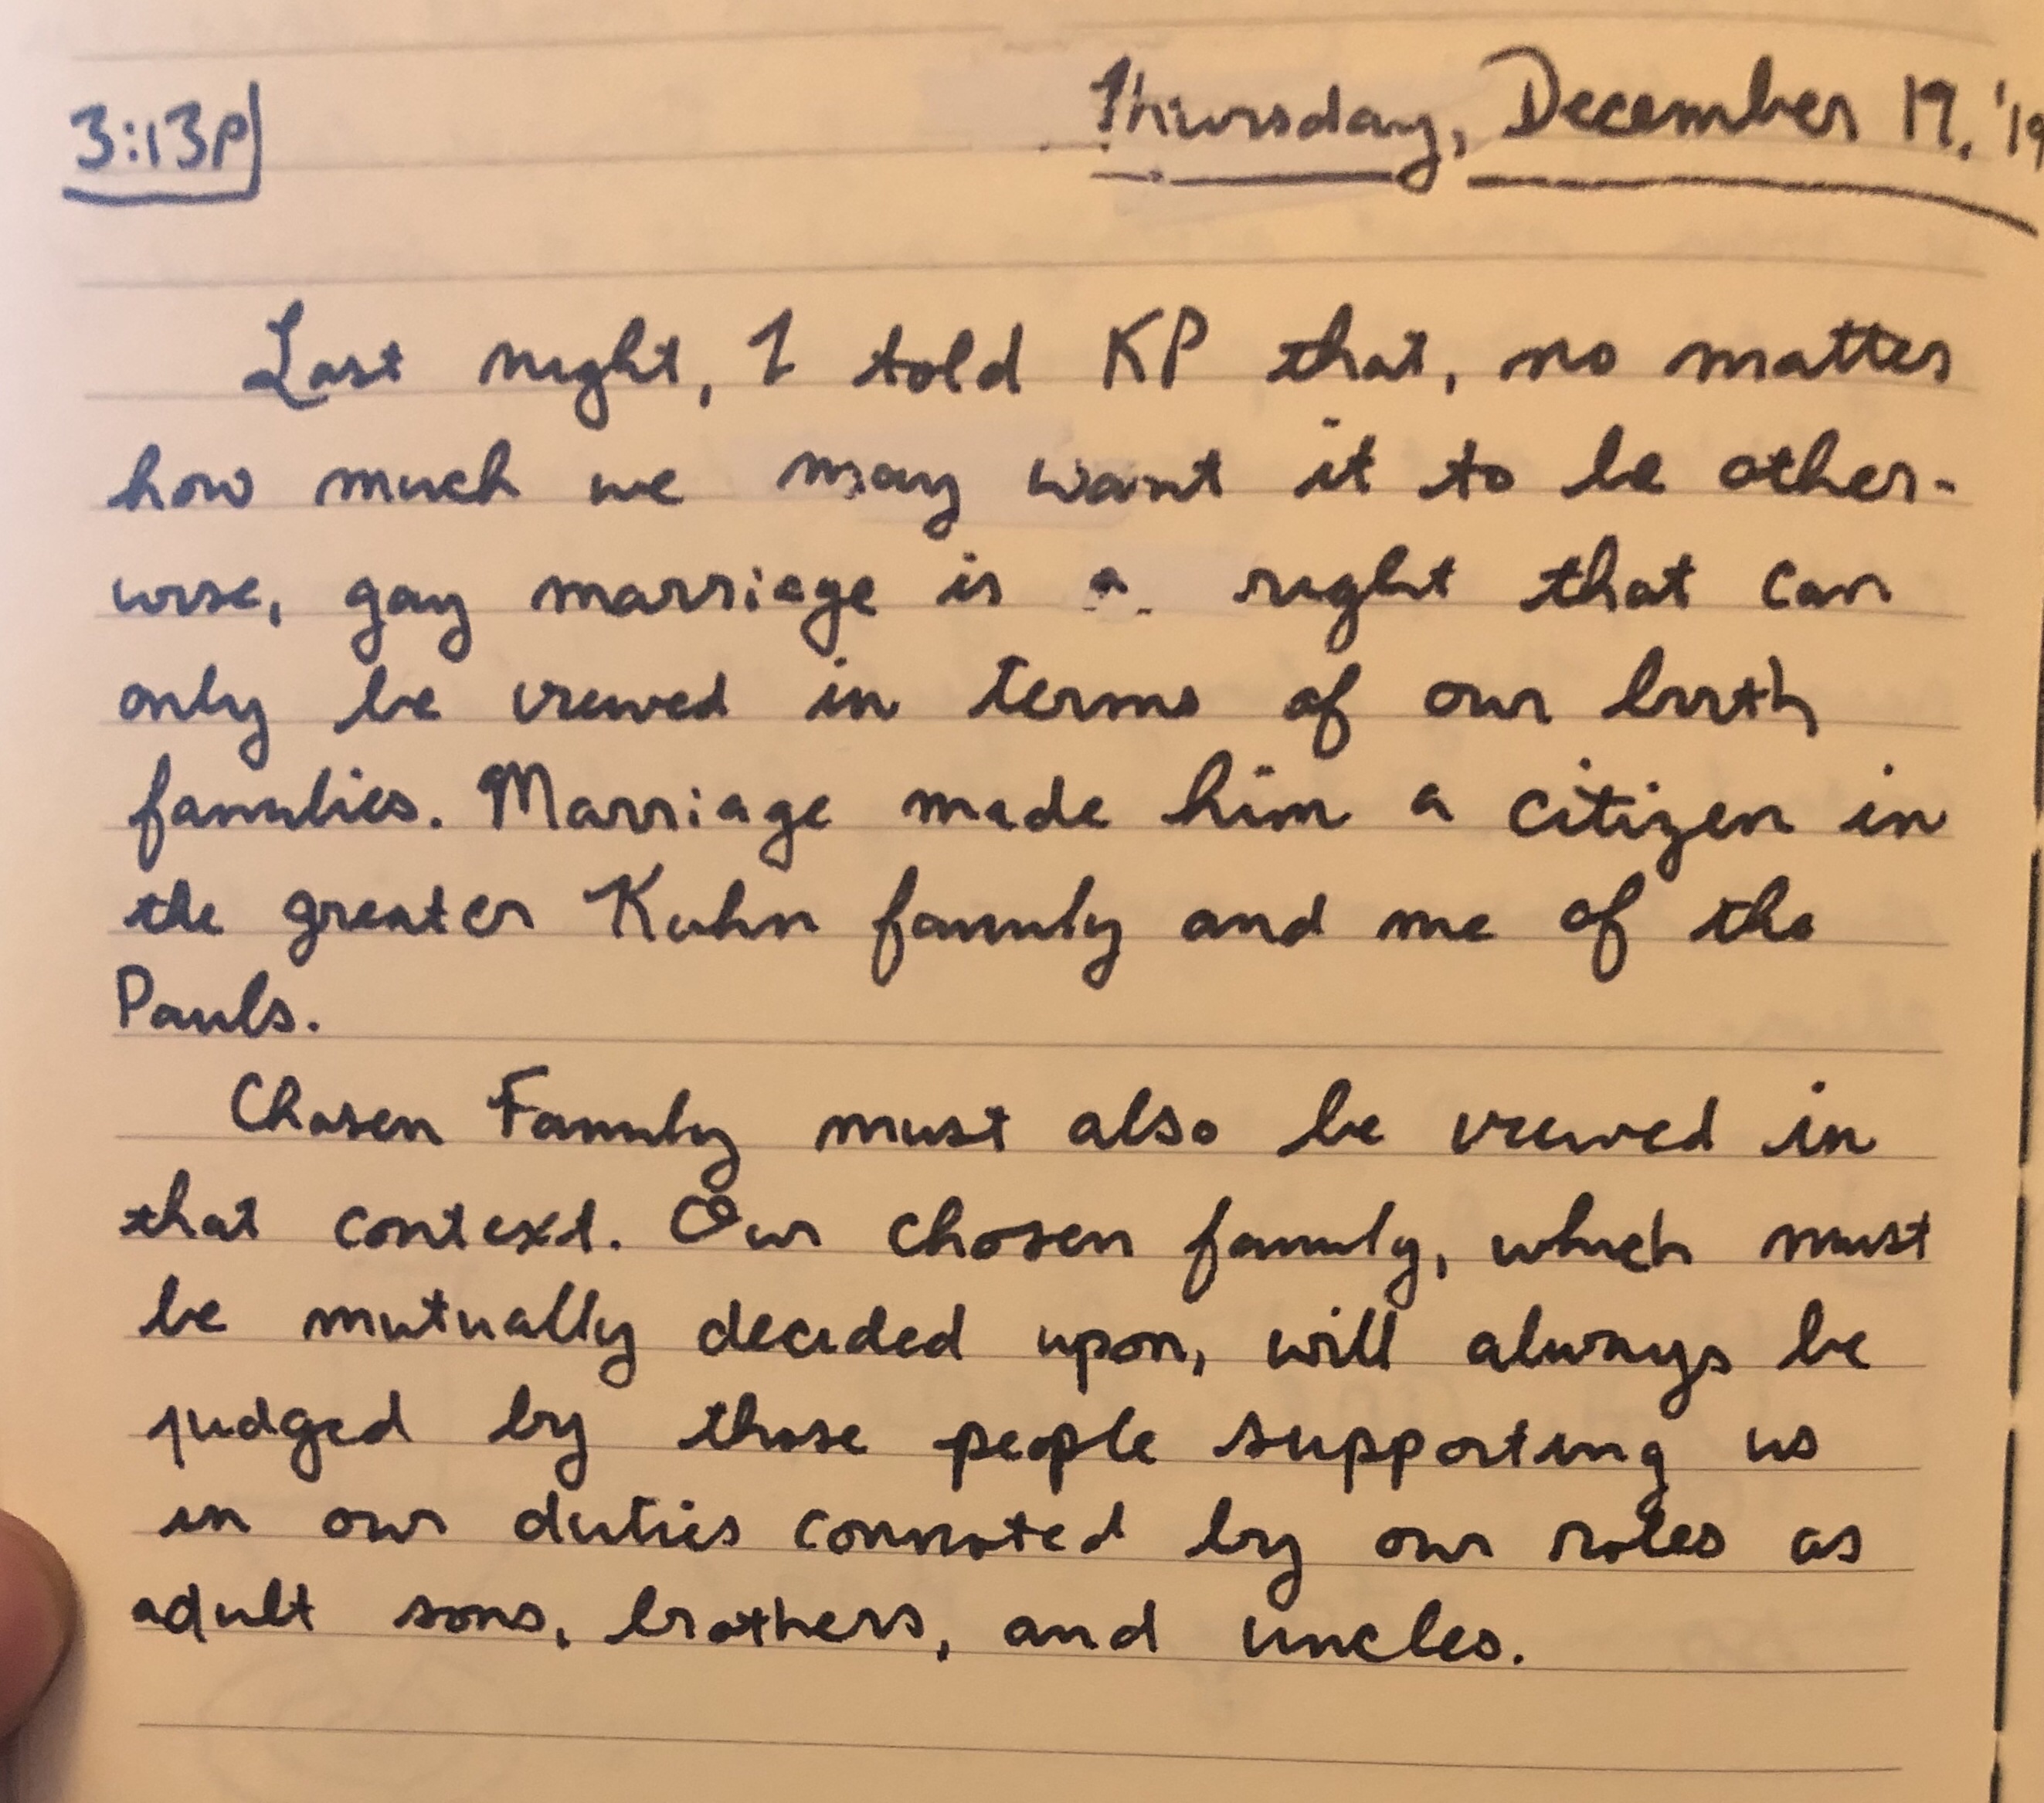 3:13p
Thursday, December 19, '19
Last night, I told KP that, no matter
how much we may want it to be other-
wise, gay marriage is a right that can
only be viewed in terms of our birth
families. Marriage made him a citizen in
the greater Kuhn family and me of the
Pauls.
Chosen Family must also be viewed in
that context. Our chosen family, which must
be mutually decided upon, will always be
judged by those people supporting us
in our duties connoted by our roles as
adult sons, brothers, and uncles.